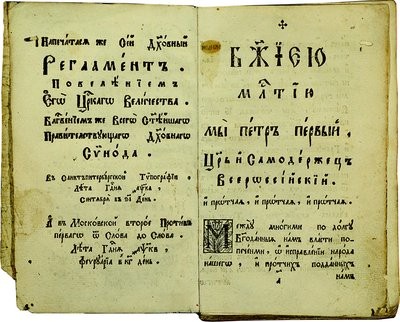 Напечатася же сей дꙋховный
Регламентъ.
Повелѣнїемъ
Егѡ Црⷭ҇кагѡ Величества.
Блгⷭ҇венїемъ же Всегѡ Ст҃ѣйшагѡ
Правителствꙋющагѡ Дꙋховнагѡ
Сѵнода.
Въ Санктъпитербꙋрской Тѷпографїи
Лѣта Гдⷭ҇ня
Септабрїа въ день.
А въ Московской второе Противъ
Перваго ѿ Слова до Слова.
Лѣта Гдⷭ҇ня
феврꙋарїа в кг день.
✢
Бж҃їею
млⷭ҇тїю
мы петръ первый.
Црь и Самодержецъ
Всерѡссїйскїй.
и прѡтчая, и прѡтчая, и прѡтчая.
Междꙋ многими по долгꙋ
Бг҃оданныя намъ власти по-
печенїи, ѡ исправленїи народа
нашегѡ, и протчихъ подданныхъ
намъ
а